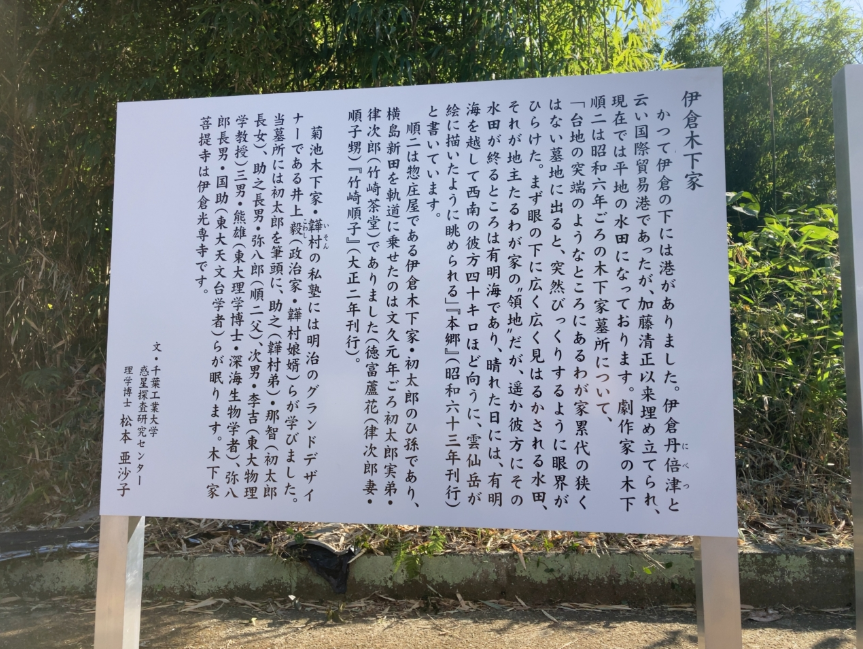 伊倉木下家
かつて伊倉の下には港がありました。伊倉丹倍津と
にべつ
云い国際貿易港であったが、加藤清正以来埋め立てられ、
現在では平地の水田になっております。劇作家の木下
順二は昭和六年ごろの木下家墓所について、
「台地の突端のようなところにあるわが家累代の狭く
はない墓地に出ると、突然びっくりするように眼界が
ひらけた。まず眼の下に広く広く見はるかされる水田、
それが地主たるわが家の〝領地〟だが、遥か彼方にその
水田が終るところは有明海であり、晴れた日には、有明
海を越して西南の彼方四十キロほど向うに、雲仙岳が
絵に描いたように眺められる」『本郷』(昭和六十三年刊行)
と書いています。
順二は惣庄屋である伊倉木下家・初太郎のひ孫であり、
横島新田を軌道に乗せたのは文久元年ごろ初太郎実弟・
律次郎(竹崎茶堂)でありました(徳富蘆花(律次郎妻・
順子甥)『竹崎順子』(大正二年刊行)。
菊池木下家・韡村の私塾には明治のグランドデザイ
いそん
ナーである井上毅(政治家・韡村娘婿)らが学びました。
こわし
当墓所には初太郎を筆頭に、助之(韡村弟)・那智(初太郎
長女)、助之長男・弥八郎(順二父)、次男・李吉(東大物理
学教授)三男・熊雄(東大理学博士・深海生物学者)、弥八
郎長男・国助(東大天文台学者)らが眠ります。木下家
菩提寺は伊倉光専寺です。
文・千葉工業大学
惑星探査研究センター
理学博士 松本 亜沙子